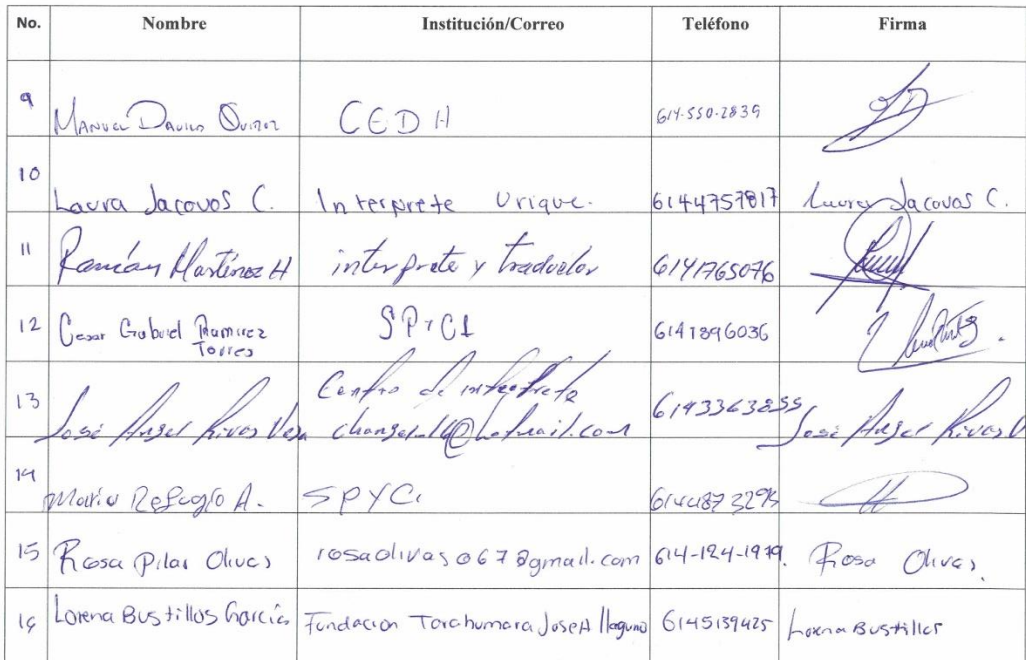 No. Nombre Institución/Correo Teléfono Firma
9 Manuel Davila Quiroz CEDH 614-550-2839
10 Laura Jacovos C. Interprete Urique. 6144757817 Laura Jacovos C.
11 Ramón Martínez H interprete y traductor 6141765076
12 Cesar Gabriel Ramirez Torres SPyCI 6141896036
13 José Angel Rivas Vega Centro de interprete 6143363255 José Angel Rivas V
14 Maria Refugio A. SPYC.
15 Rosa Pilar Olivas rosaolivas067@gmail.com 614-124-1979. Rosa Olivas
16 Lorena Bustillos García Fundacion Tarahumara Jose A llaguno 6145139425 Lorena Bustillos